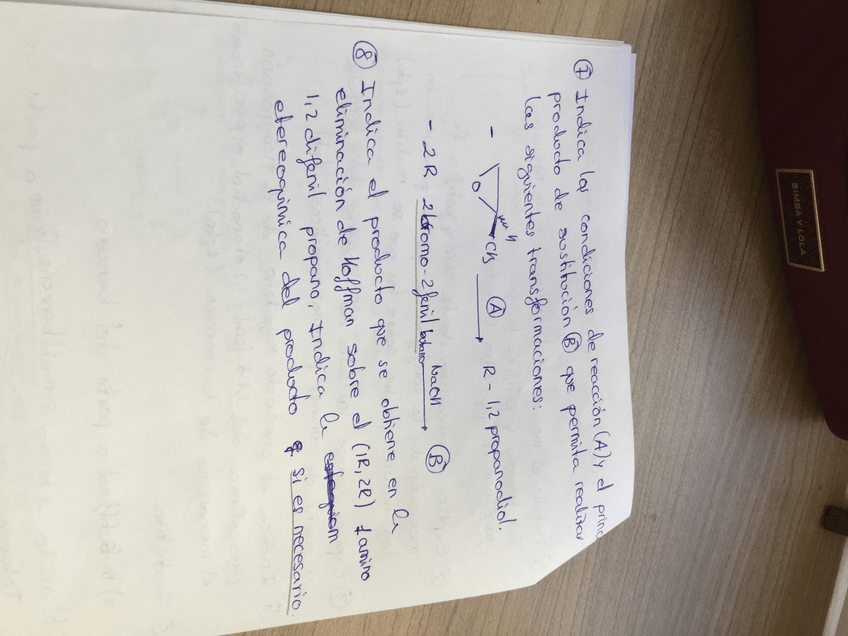 ⑦ Indica las condiciones de reacción (A) y el princ
producto de sustitución Ⓑ que permita realizar
las siguientes transformaciones:
- O H CH3 Ⓐ R - 1,2 propanodiol.
- 2R 2bromo-2fenil butano NaOH Ⓑ
⑧ Indica el producto que se obtiene en la
eliminación de Hoffman sobre el (1R, 2R) 1 amino
1,2 difenil propano, Indica la
etereoquimica del producto si es necesario.
BIMBA Y LOLA